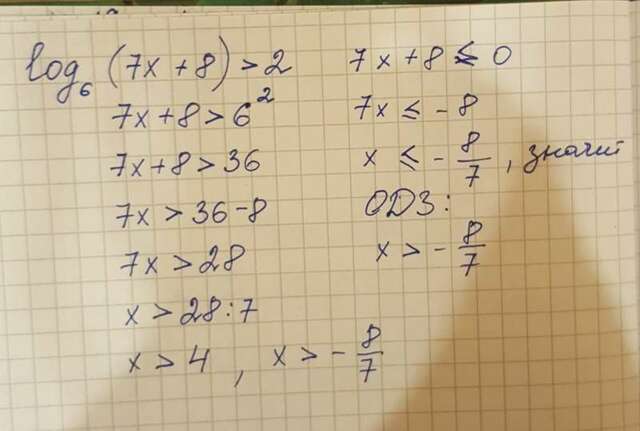 log₆ (7x + 8) > 2
7x + 8 > 6²
7x + 8 > 36
7x > 36 - 8
7x > 28
x > 28 : 7
x > 4 , x > - 8/7
7x + 8 ≤ 0
7x ≤ - 8
x ≤ - 8/7 , значит
ОДЗ :
x > - 8/7